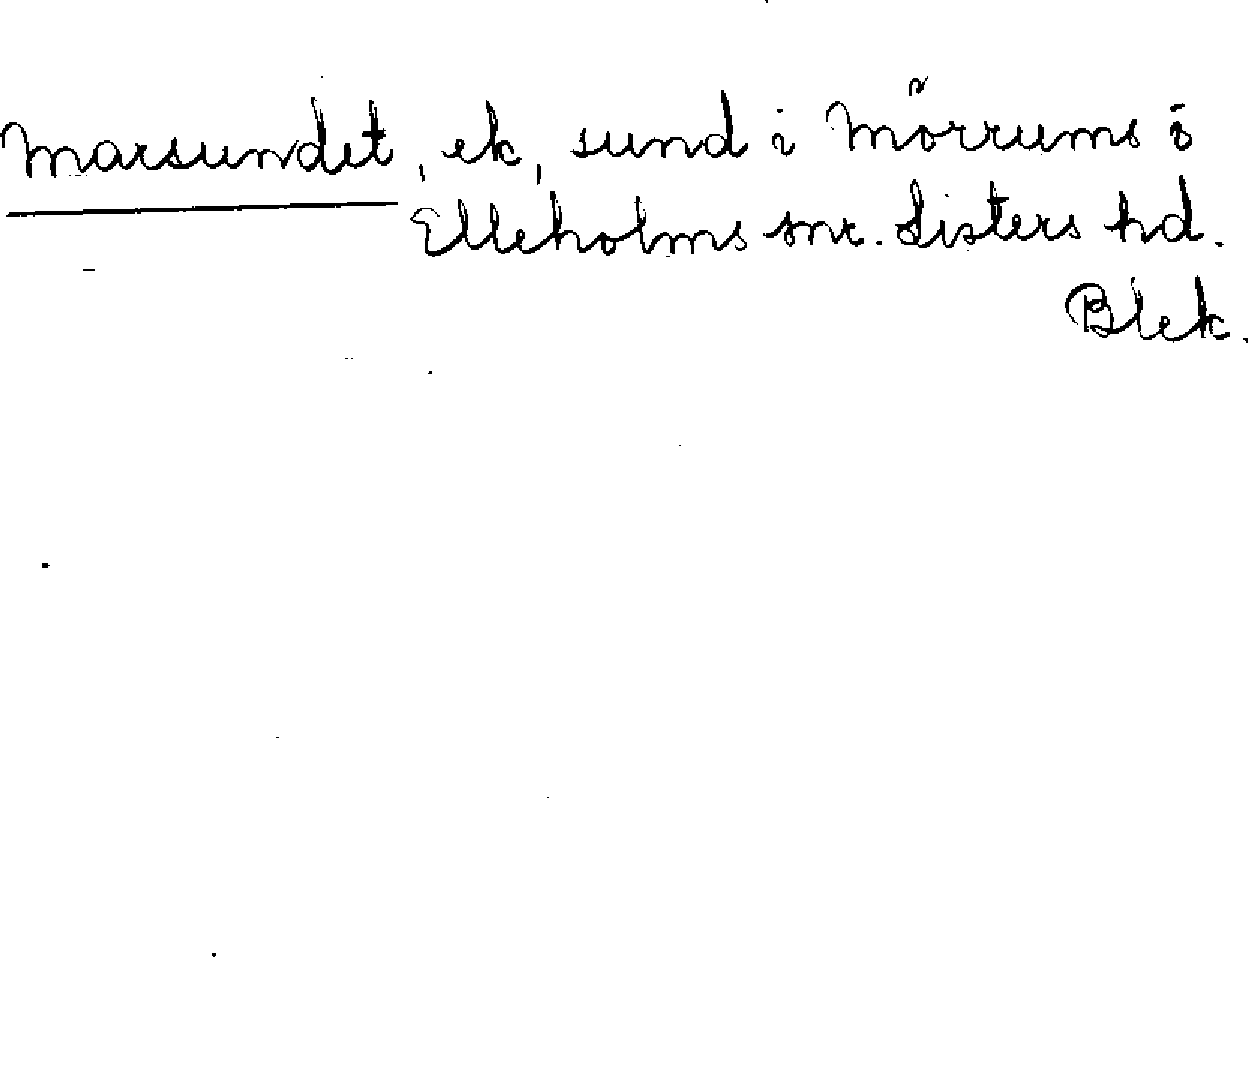 Marsundet, ek, sund i Mörrums ö
Elleholms snr. Listers hd.
Blek.